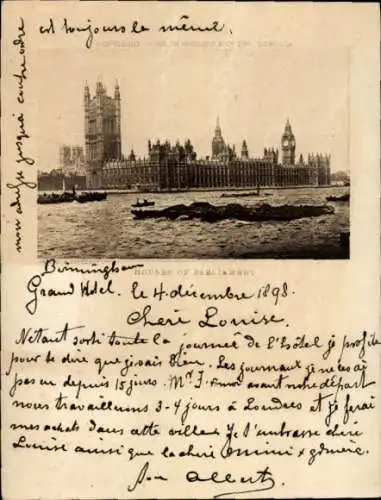 est toujours le même
mon adresse jusqu'à contre ordre
HOUSES OF PARLIAMENT
Birmingham
Grand Hotel. le 4 décembre 1898.
Cherie Louise.
N'étant sorti toute la journée de l'hôtel je profite
pour te dire que je vais bien. Les journaux je ne les ai
pas eu depuis 15 jours. Mr J. avant notre départ
nous travaillerons 3-4 jours à Londres et je ferai
mes achats dans cette ville. Je t'embrasse chère
Louise ainsi que la chère
ton Albert